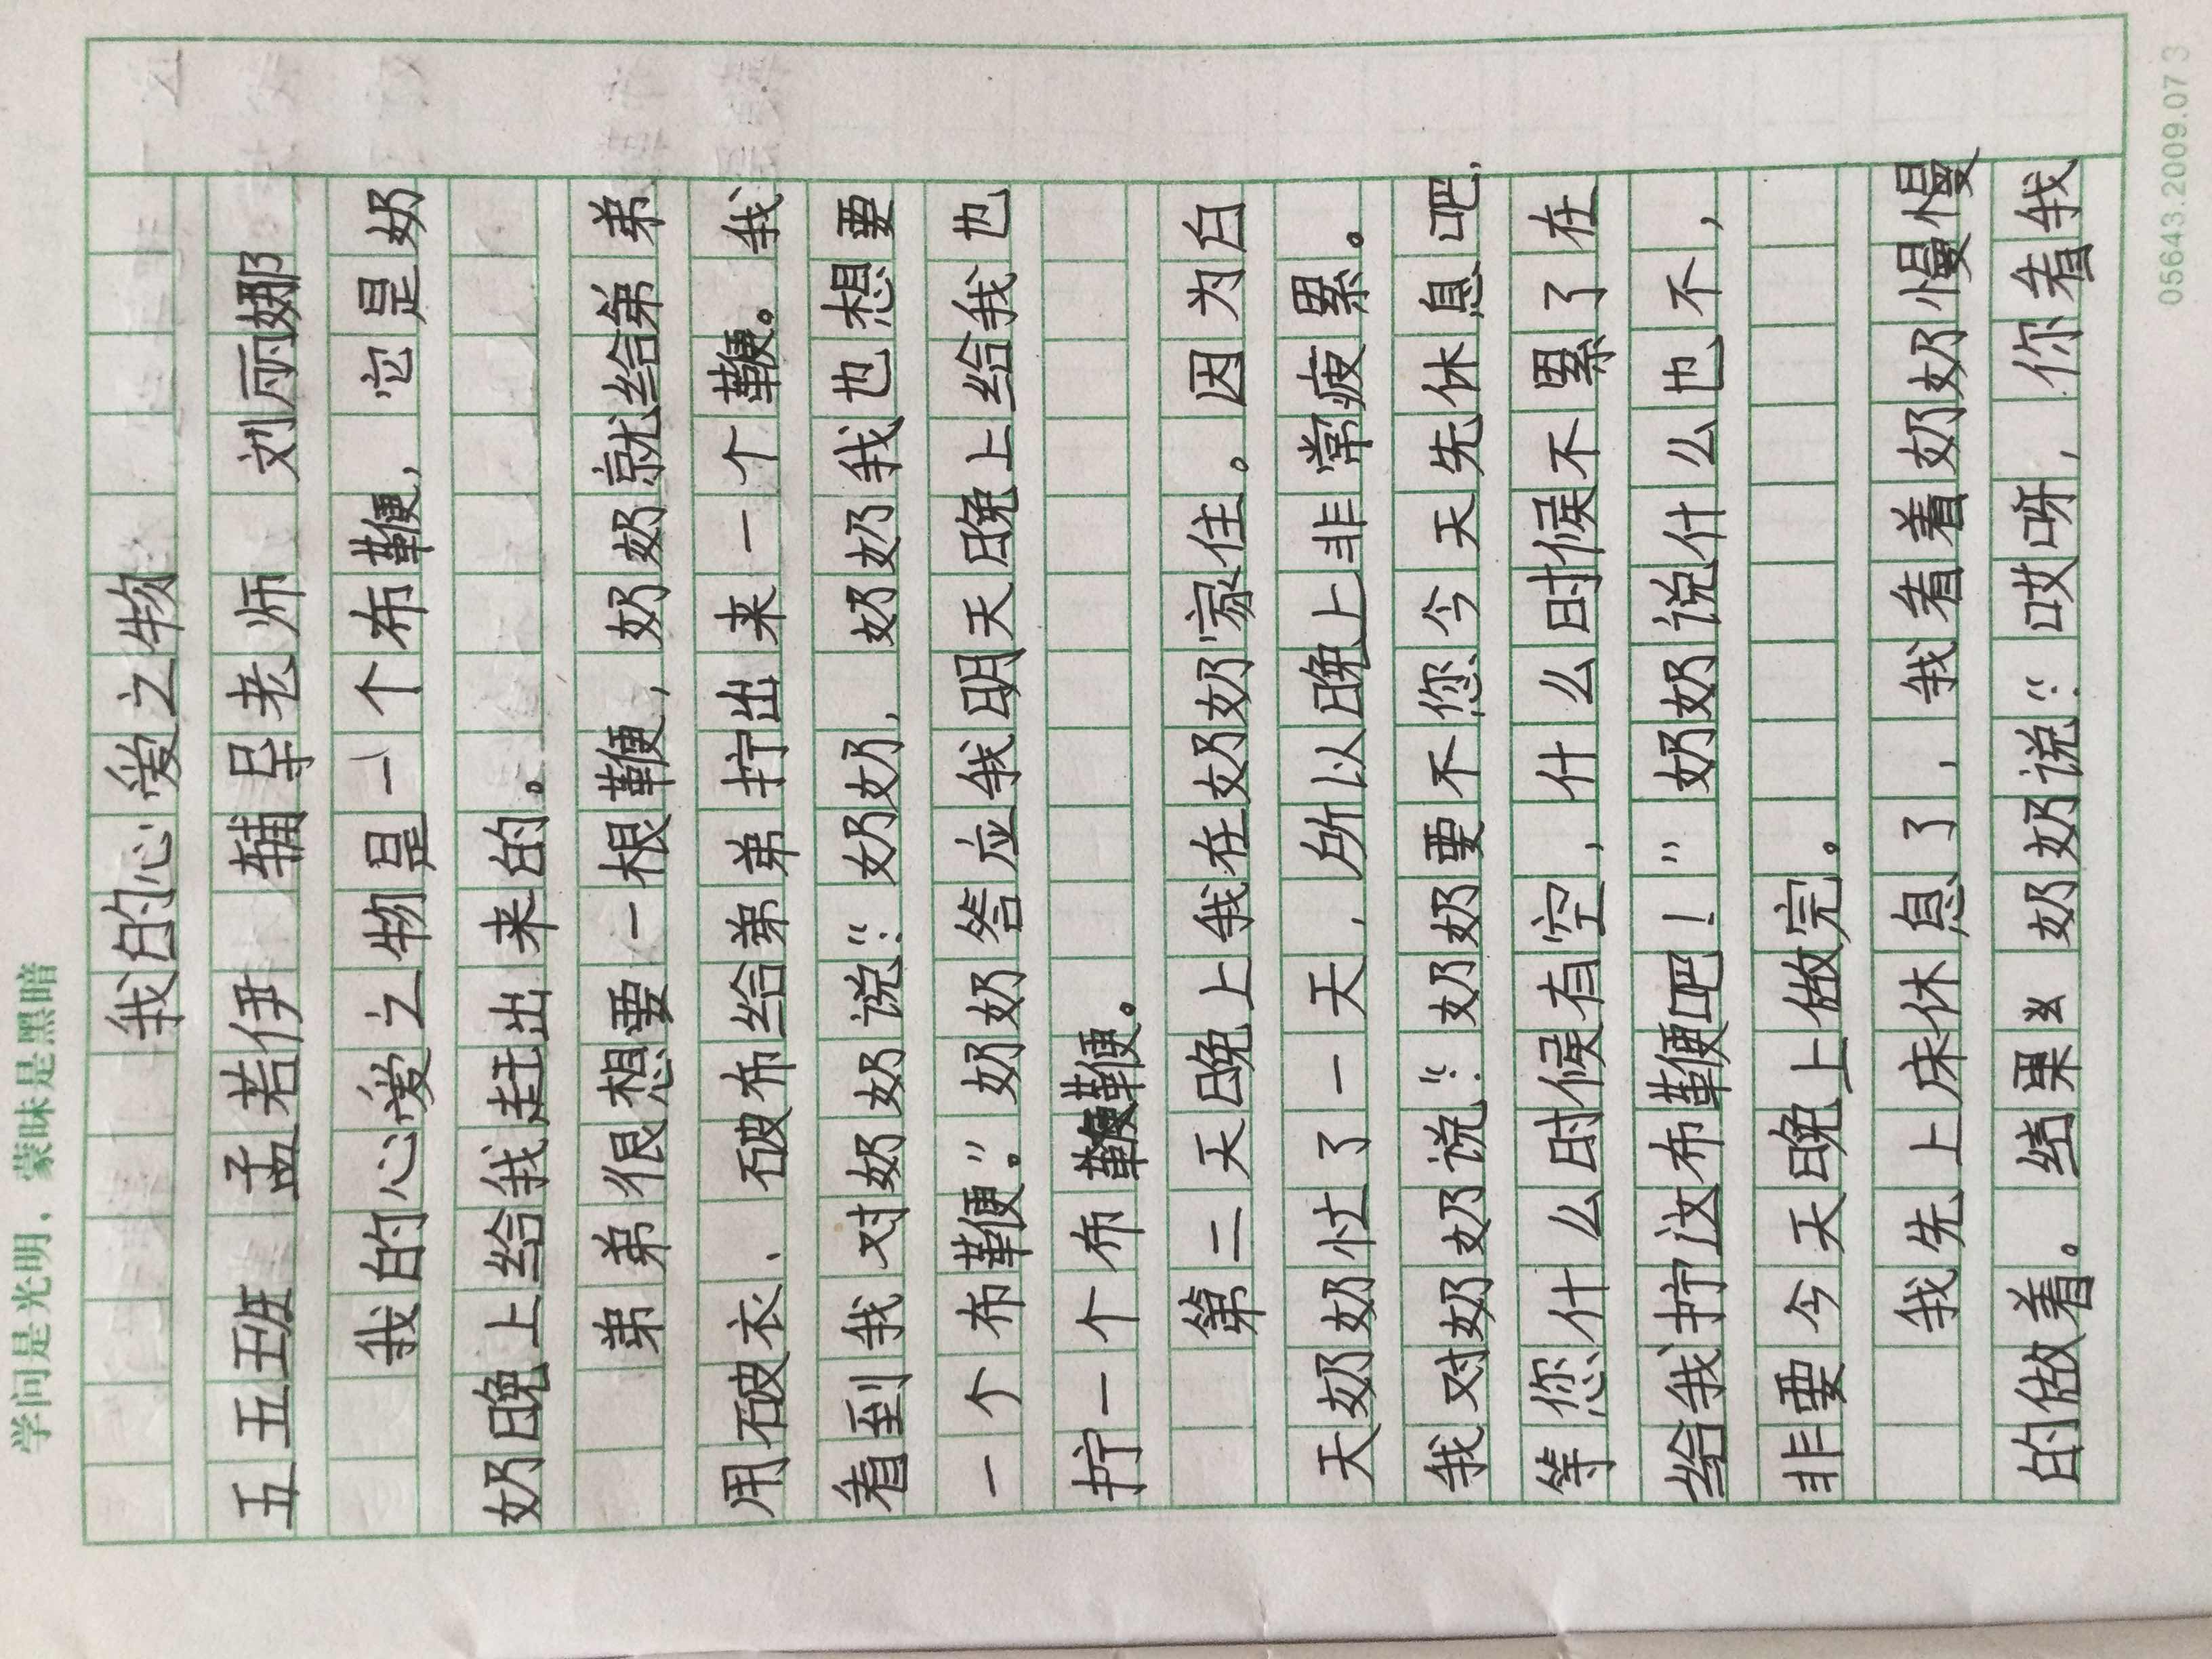 学问是光明，蒙昧是黑暗
我的心爱之物
五五班 孟若伊 辅导老师 刘丽娜
我的心爱之物是一个布鞭，它是奶
奶晚上给我赶出来的。
弟弟很想要一根鞭，奶奶就给弟弟
用破衣、破布给弟弟拧出来一个鞭。我
看到我对奶奶说：“奶奶，奶奶我也想要
一个布鞭。”奶奶答应我明天晚上给我也
拧一个布鞭。
第二天晚上我在奶奶家住。因为白
天奶奶忙了一天，所以晚上非常疲累。
我对奶奶说：“奶奶要不您今天先休息吧，
等您什么时候有空，什么时候不累了在
给我拧这布鞭吧！”奶奶说什么也不，
非要今天晚上做完。
我先上床休息了，我看着奶奶慢慢
的做着。结果 奶奶说：“哎呀，你看我
05643.2009.073